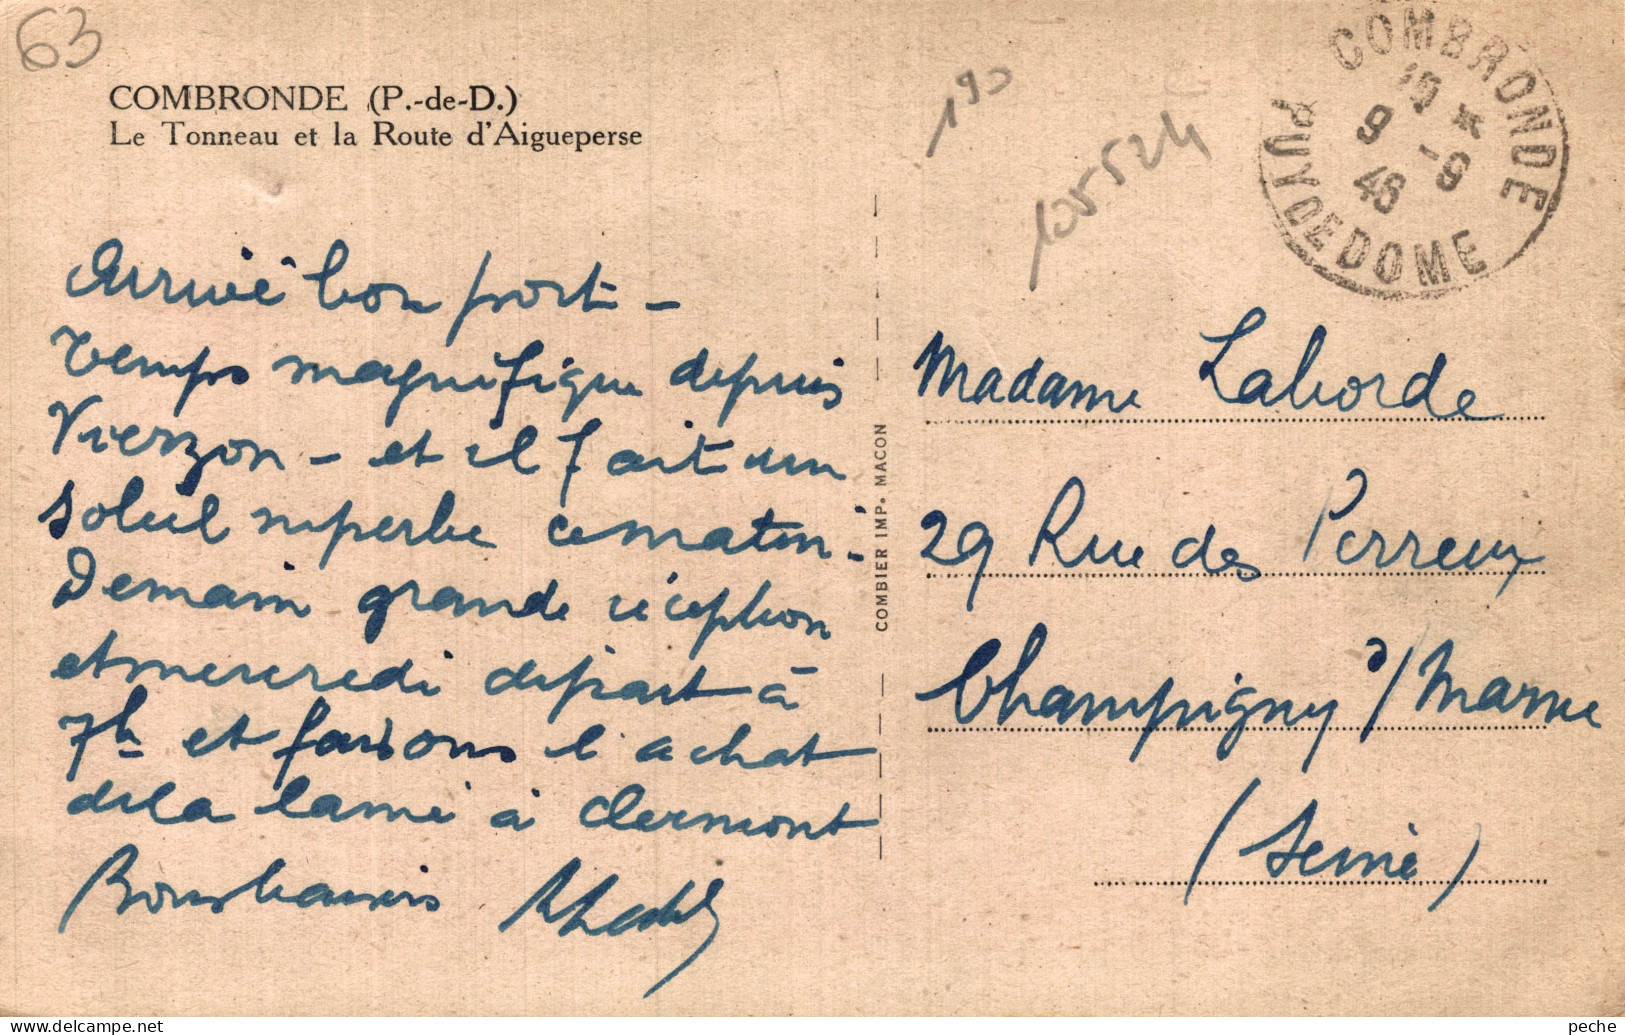 63
COMBRONDE (P.-de-D.)
Le Tonneau et la Route d'Aigueperse
Arrivé bon port –
temps magnifique depuis
Vierzon – et il fait un
soleil superbe ce matin.
Demain grande réception
et mercredi départ à
7h et faisons l'achat
de la lame à Clermont
Bons baisers
COMBIER IMP. MACON
190
105524
COMBRONDE
15 *
9 -9
46
PUY DE DOME
Madame Laborde
29 Rue des Perreux
Champigny s/Marne
(Seine)
peche